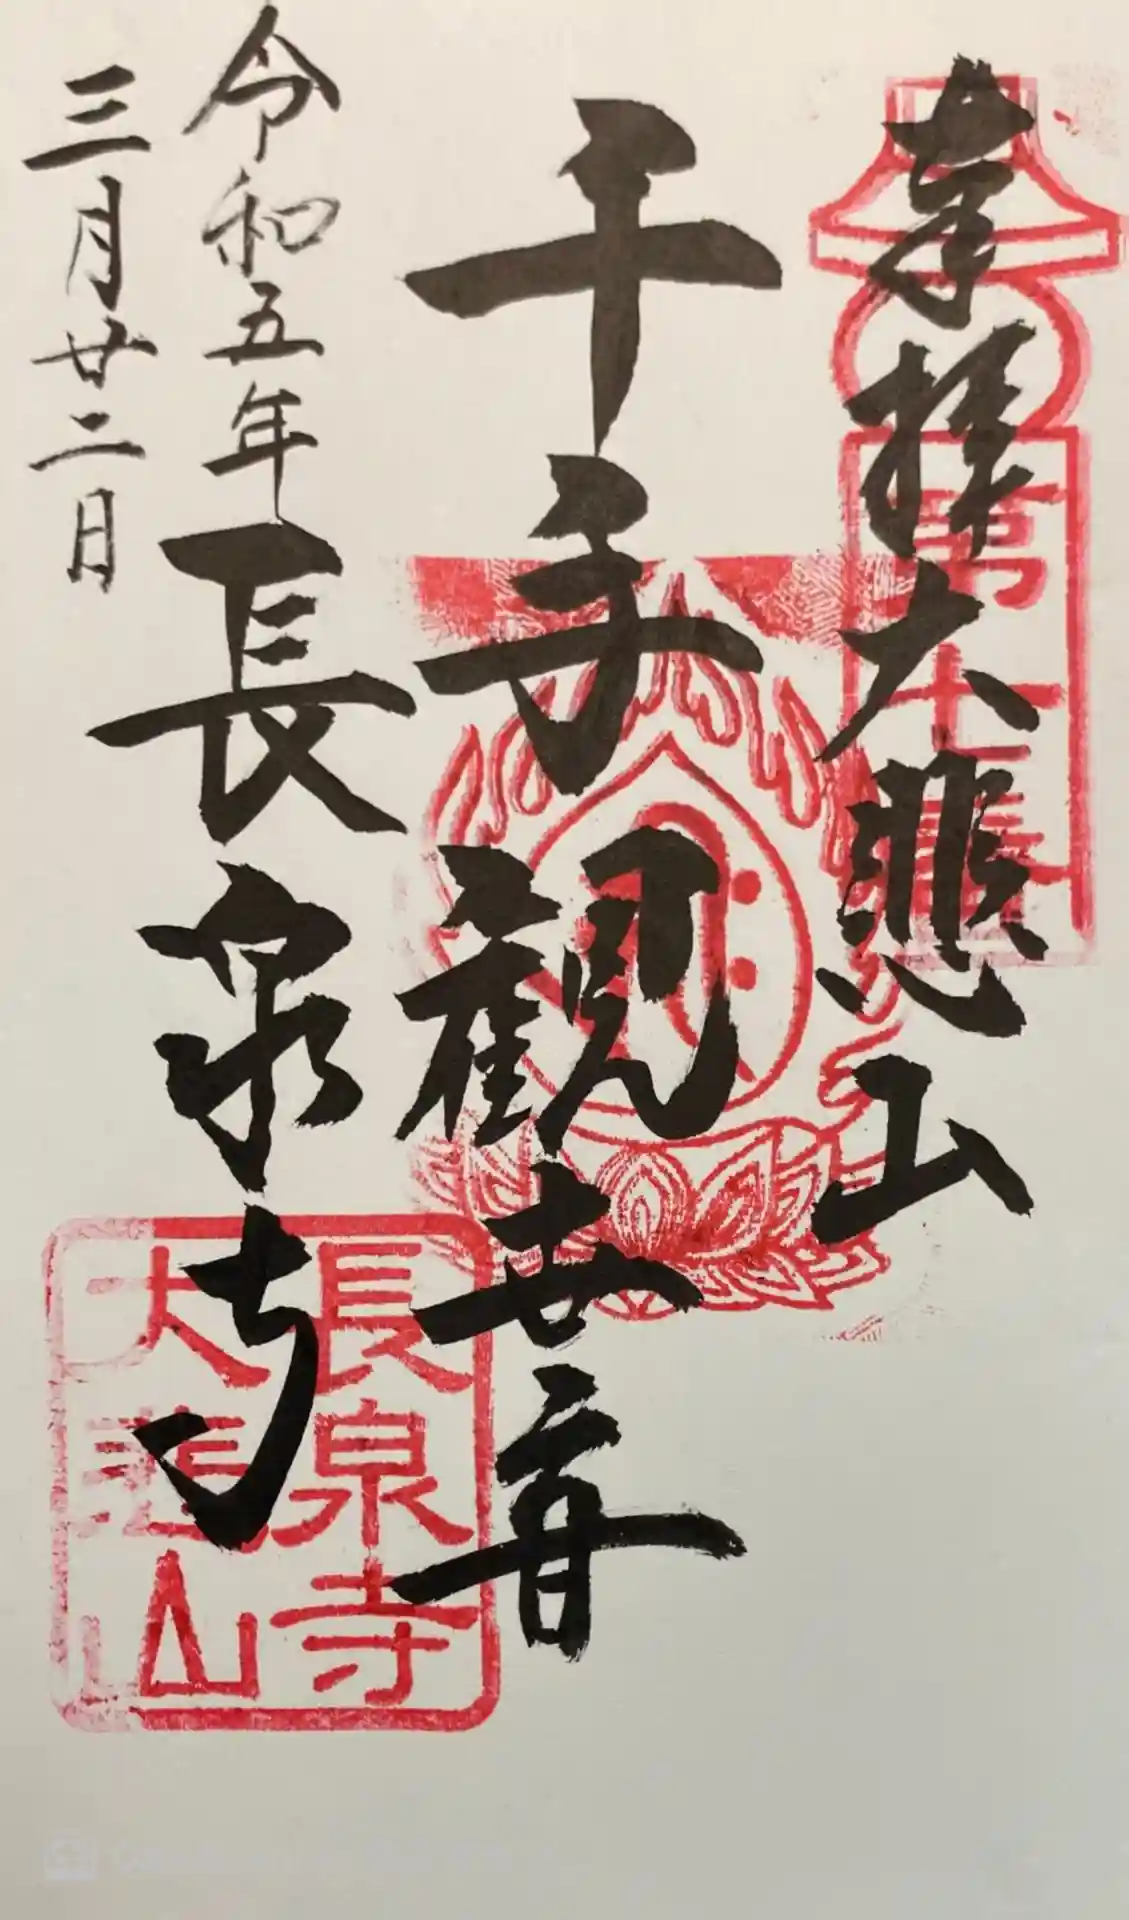 奉拝 大悲山
千手観世音
長泉寺
令和五年
三月廿二日
第
十
番
長泉寺
大悲山